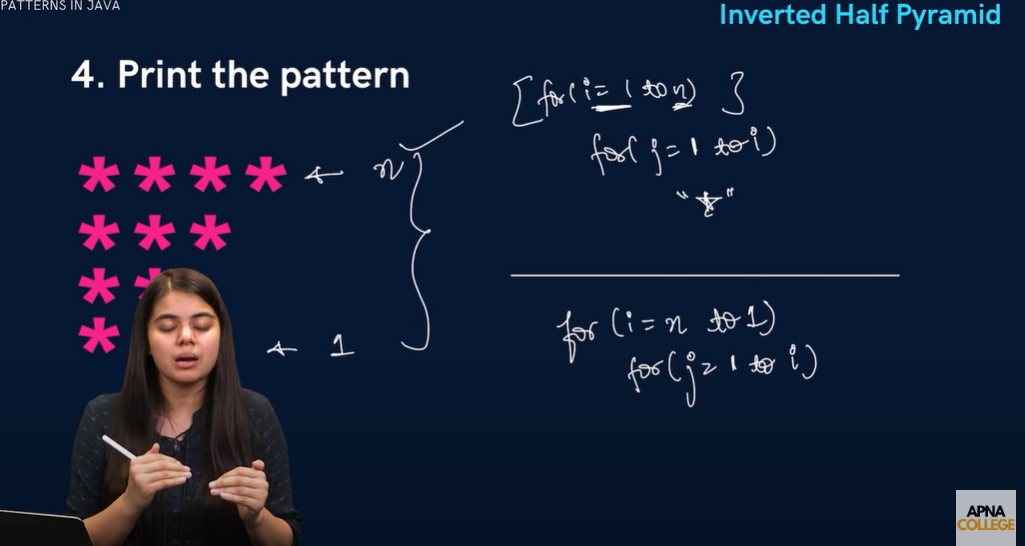 PATTERNS IN JAVA
Inverted Half Pyramid
4. Print the pattern
* * * * ← n
* * *
* *
* ← 1
[for(i=1 to n) }
for(j=1 to i)
"*"
for (i=n to 1)
for(j=1 to i)
APNA
COLLEGE